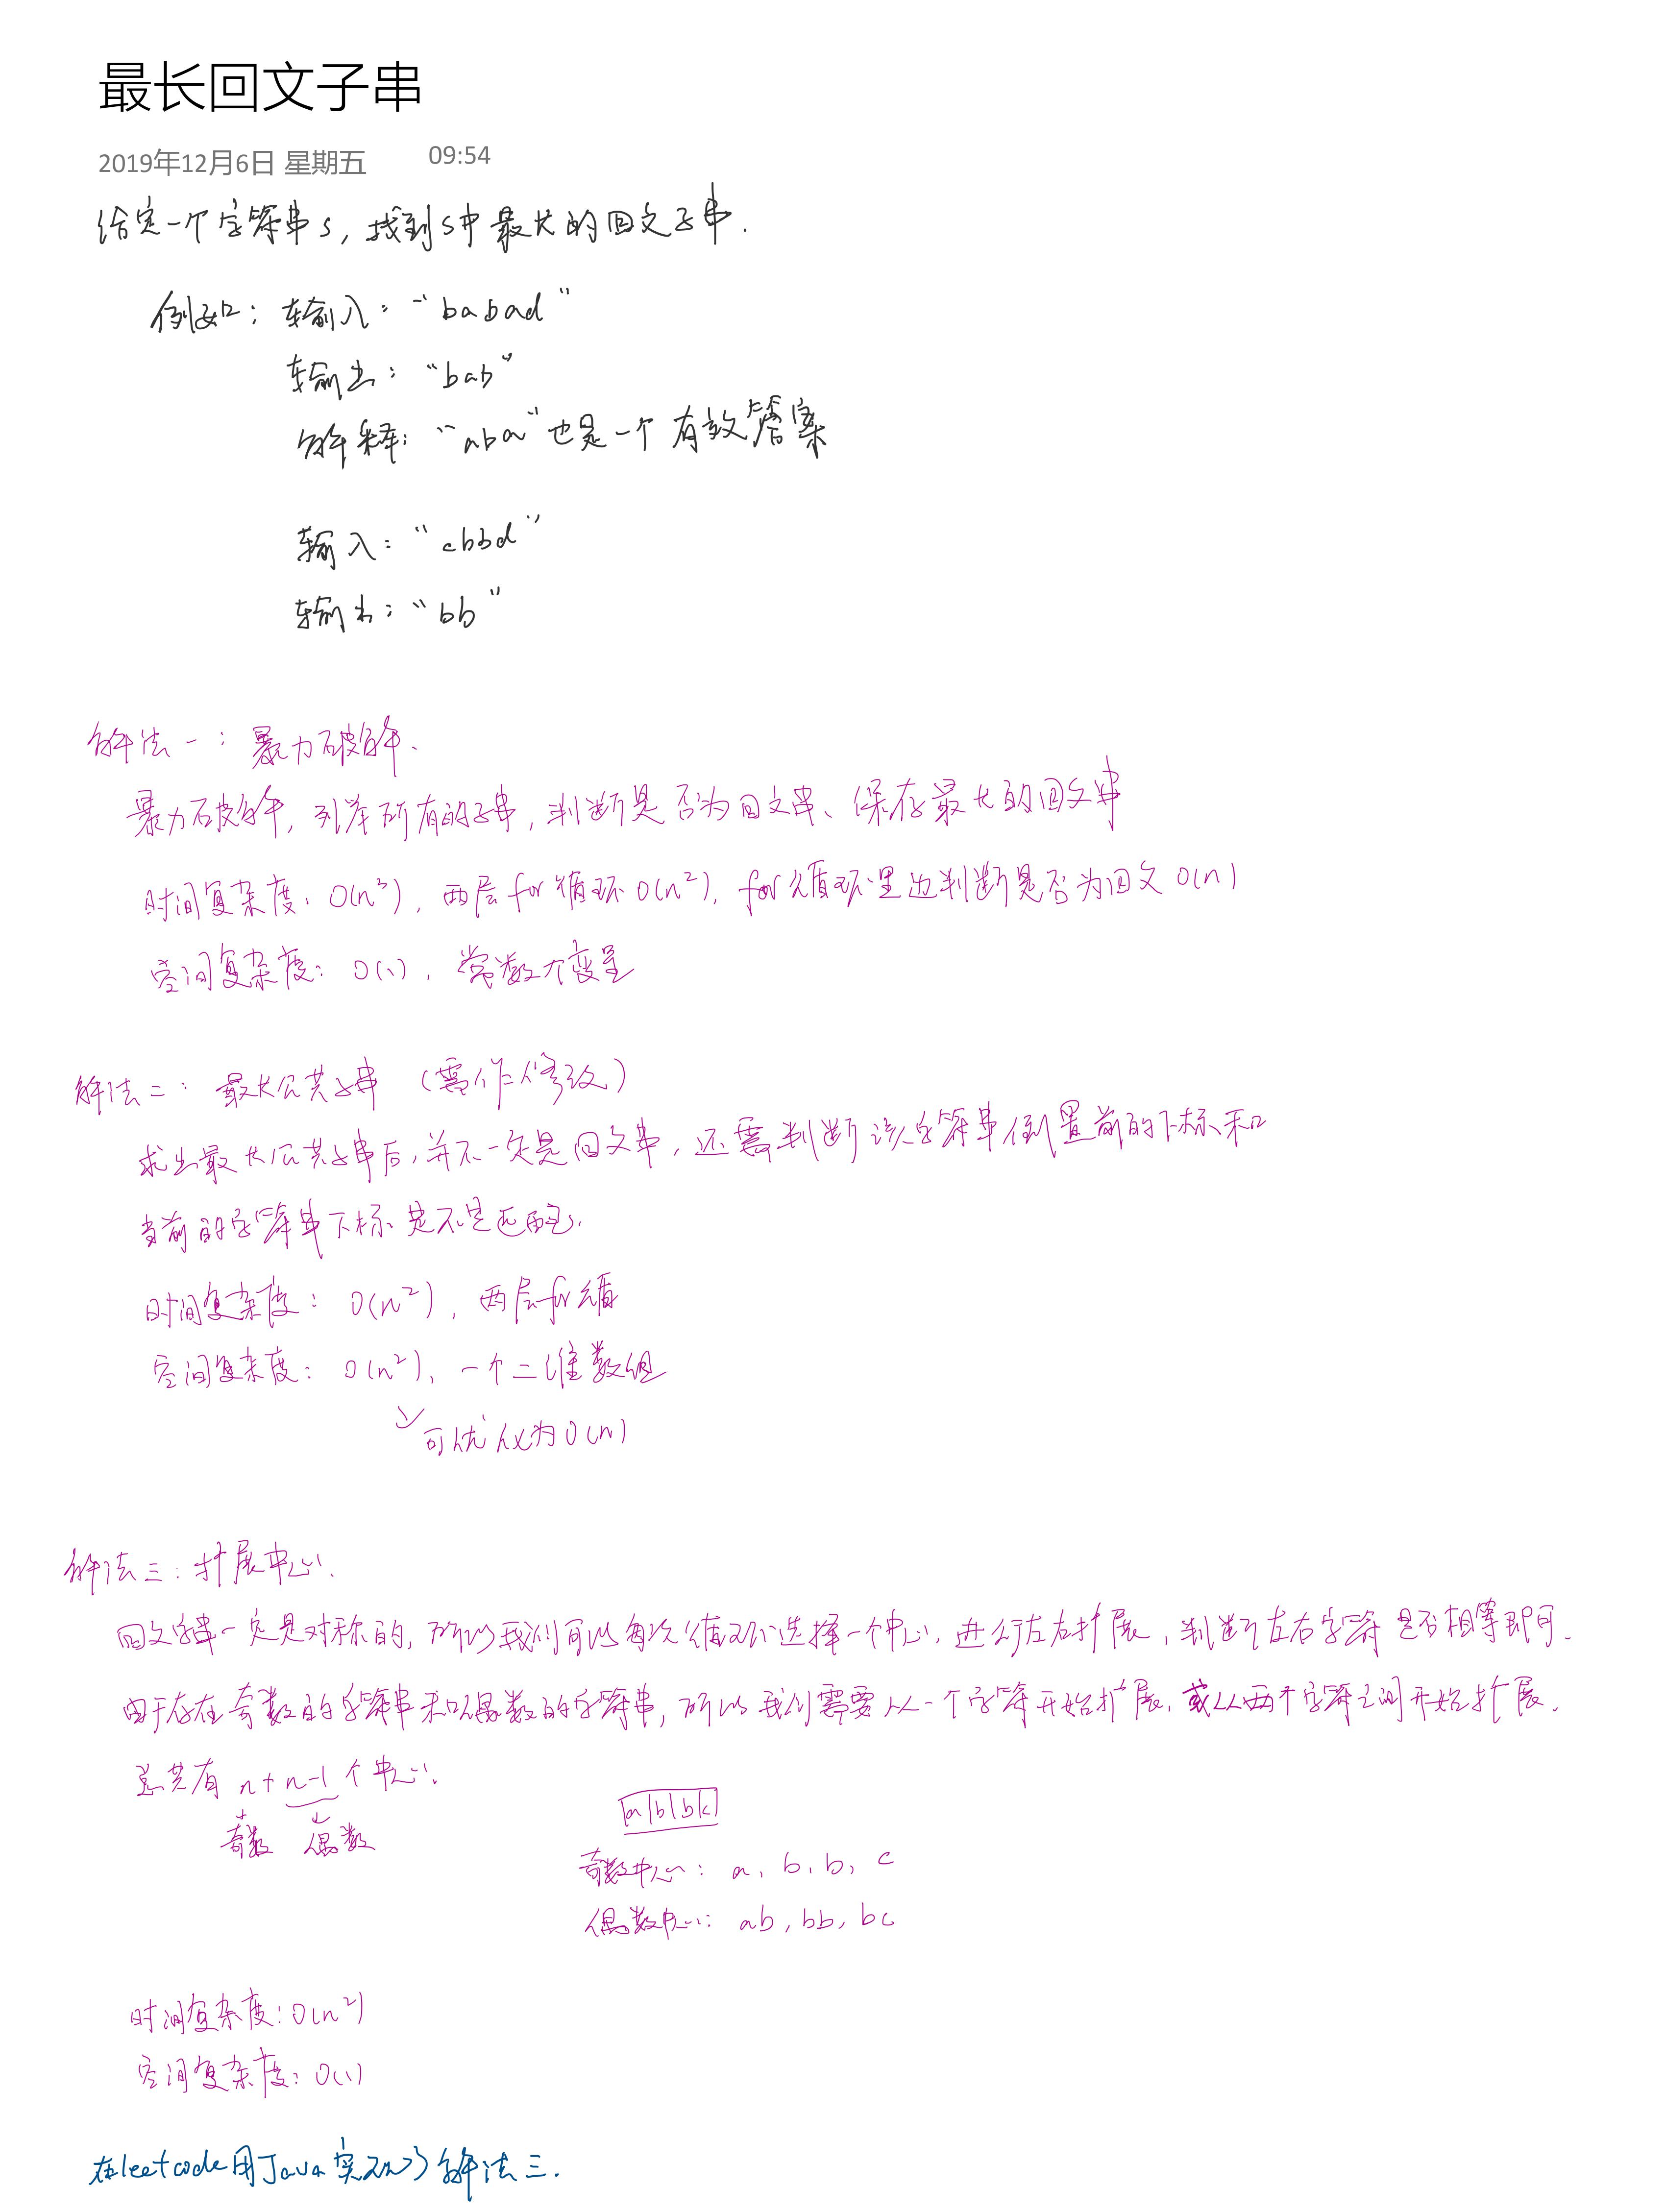 最长回文子串
2019年12月6日 星期五 09:54
给定一个字符串s,找到s中最长的回文子串.
例如:输入:"babad"
输出:"bab"
解释:"aba"也是一个有效答案
输入:"cbbd"
输出:"bb"
解法一:暴力破解.
暴力破解,列举所有的子串,判断是否为回文串、保存最长的回文串
时间复杂度:O(n³),两层for循环O(n²),for循环里边判断是否为回文O(n)
空间复杂度:O(1),常数个变量
解法二:最长公共子串(需作修改)
求出最长公共子串后,并不一定是回文串,还需判断该字符串倒置前的下标和
当前的字符串下标是不是匹配.
时间复杂度:O(n²),两层for循
空间复杂度:O(n²),一个二维数组
可优化为O(n)
解法三:扩展中心.
回文字串一定是对称的,所以我们可以每次循环选择一个中心,进行左右扩展,判断左右字符是否相等即可.
由于存在奇数的字符串和偶数的字符串,所以我们需要从一个字符开始扩展,或从两个字符之间开始扩展.
总共有n+n-1个中心.
奇数 偶数
a|b|b|c
奇数中心:a,b,b,c
偶数中心:ab,bb,bc
时间复杂度:O(n²)
空间复杂度:O(1)
在leetcode用Java实现了解法三.